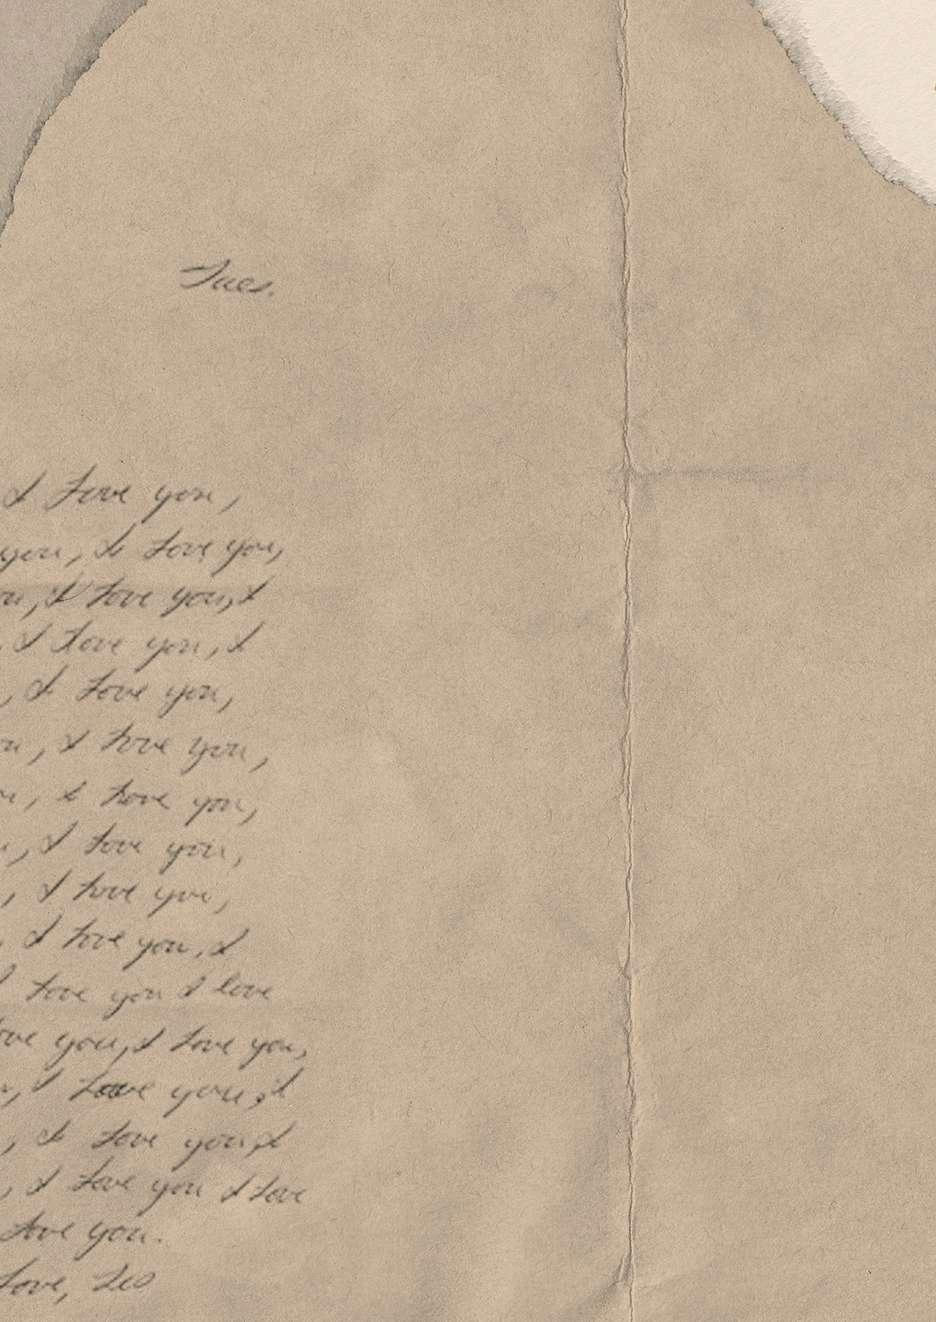 Tues.
I love you,
you, I love you,
ou, I love you, I
, I love you, I
, I love you,
ou, I love you,
u, I love you,
u, I love you,
, I love you,
, I love you, I
I love you I love
ove you, I love you,
u, I love you, I
, I love you, I
, I love you I love
love you.
Love, Leo